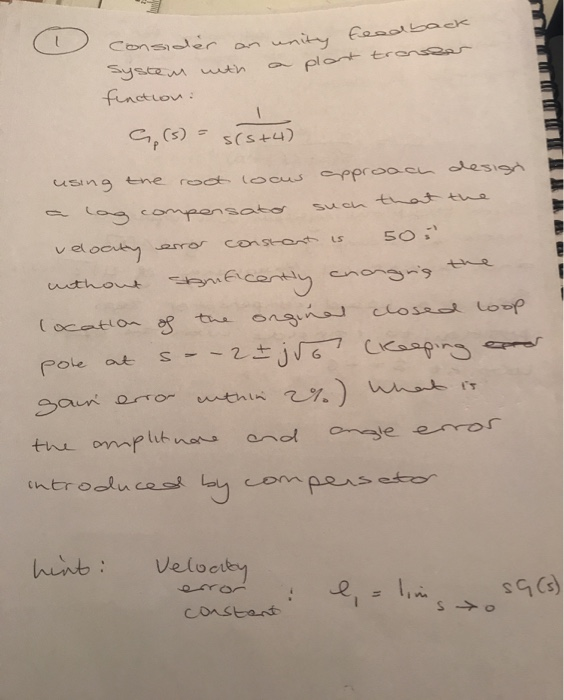 1 Consider an unity feedback
system with a plant transfer
function:
Gp(s) = 1 / s(s+4)
using the root locus approach design
a lag compensator such that the
velocity error constant is 50 s⁻¹
without significantly changing the
location of the orginal closed loop
pole at s = -2 ± j√6 (keeping
gain error within 2%.) What is
the amplitude and angle error
introduced by compensator
hint: Velocity
error
constant : e₁ = lim s→0 sG(s)